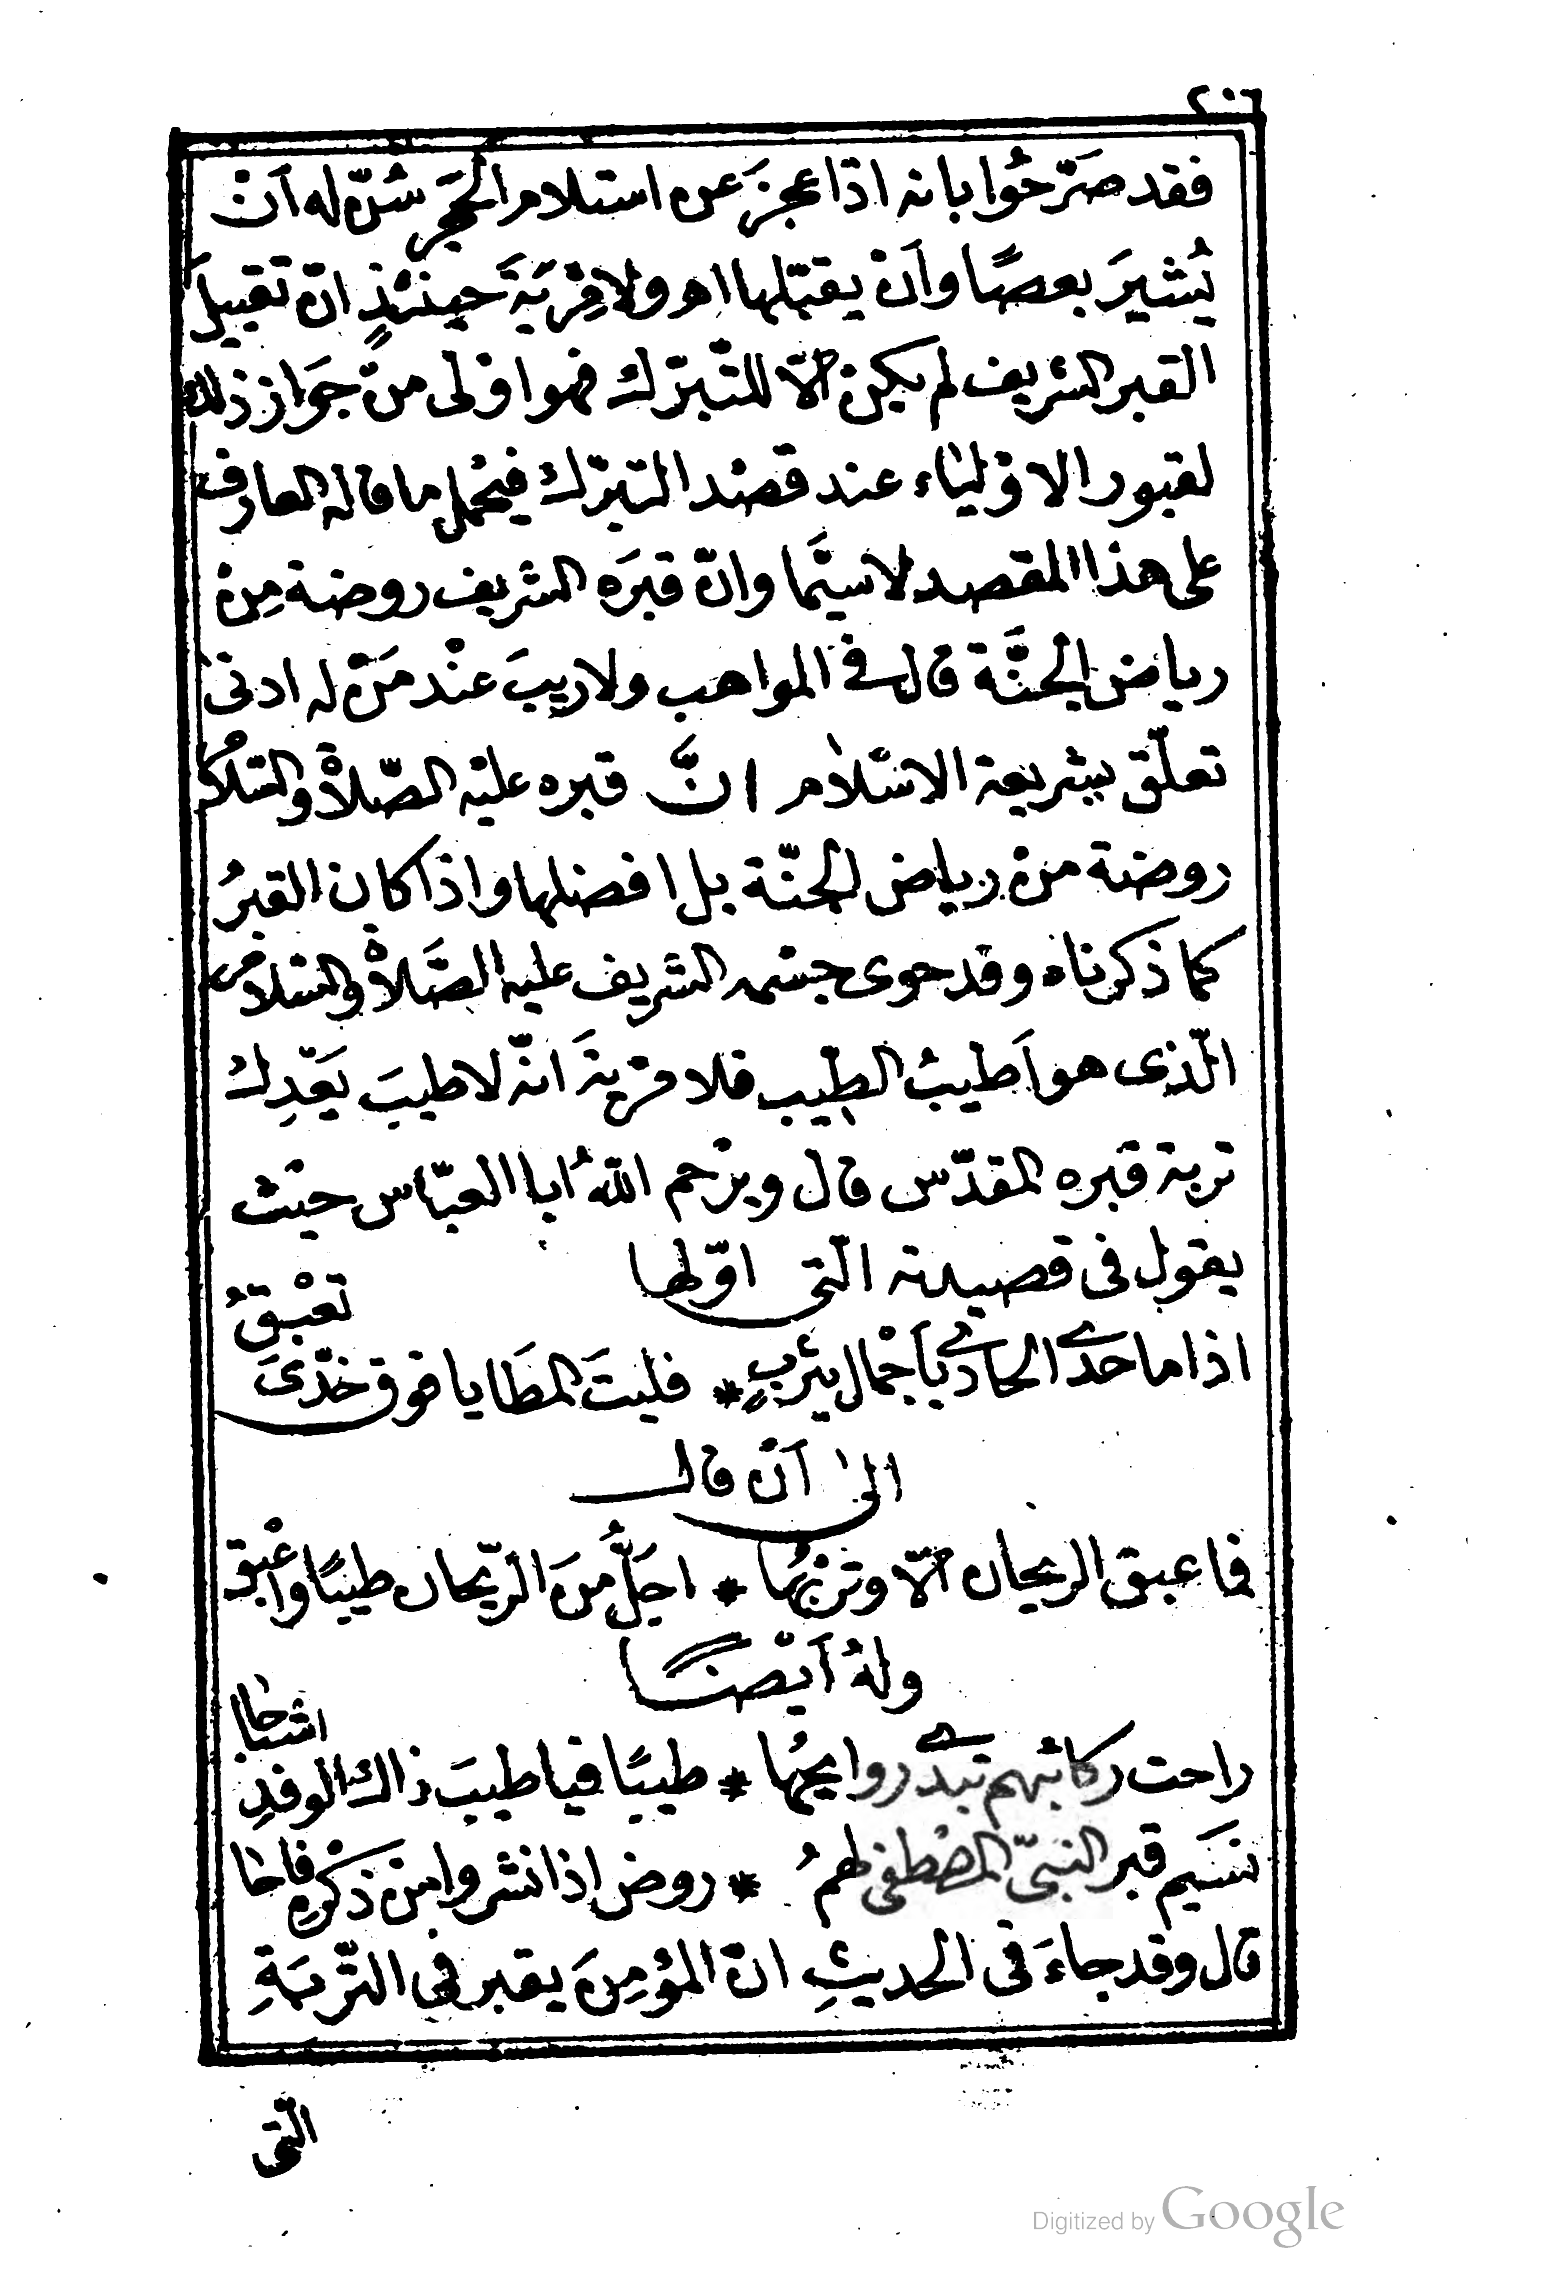 ٢٠٦
فقد صَرّحُوا بانه اذا عجزَ عن استلام الحَجَر سُنّ له اَنْ
يُشيرَ بعصًا واَنْ يقبّلها اهـ ولا مِرْيَةَ حينئذٍ انّ تقبيلَ
القبر الشريف لم يكنْ الّا للتّبرّك فهو اوْلى منْ جَواز ذلك
لقبور الاوْلياء عند قصْد التبرّك فيُحْمل ما قاله العارف
على هذا المقصد لا سيّما وانّ قبرَه الشريف روضة مِنْ
رياض الجنَّة قال في المواهب ولا ريبَ عنْد مَنْ له ادنىٰ
تعلّق بشريعة الاسْلام انَّ قبره عليْه الصّلاةُ والسّلامُ
روضة منْ رياض الجنّة بل افضلها واذا كان القبرُ
كما ذكرناه وقد حوى جسْمه الشريف عليه الصَّلاةُ والسّلامُ
الّذى هو اَطيبُ الطّيب فلا مرْيةَ انّه لا طيبَ يَعْدِل
تربة قبره المقدّس قال ويرْحم اللّهُ ابا العبّاس حيْث
يقول فى قصيدته الّتى اوّلها
اذا ما حدى الحادى باَجْمال يثربٍ * فليتَ المطَايا فوق خدّىَ تعْبقُ
الىٰ اَنْ قال
فما عبق الريحان الّا وترْبُها * اجَلُّ منَ الرّيحان طيبًا واعْبق
ولهُ اَيْضًا
راحت ركائبُهم تبدى روايحُها * طيبًا فيا طيبَ ذاك الوفدِ اشباحا
نسَيم قبر النبىّ المصْطفى لهمُ * روض اذا نشروا منْ ذكْرِه فاحا
قال وقد جاءَ فى الحديثِ انّ المؤمِنَ يقبر فى التّربَةِ
الّتى
Digitized by Google